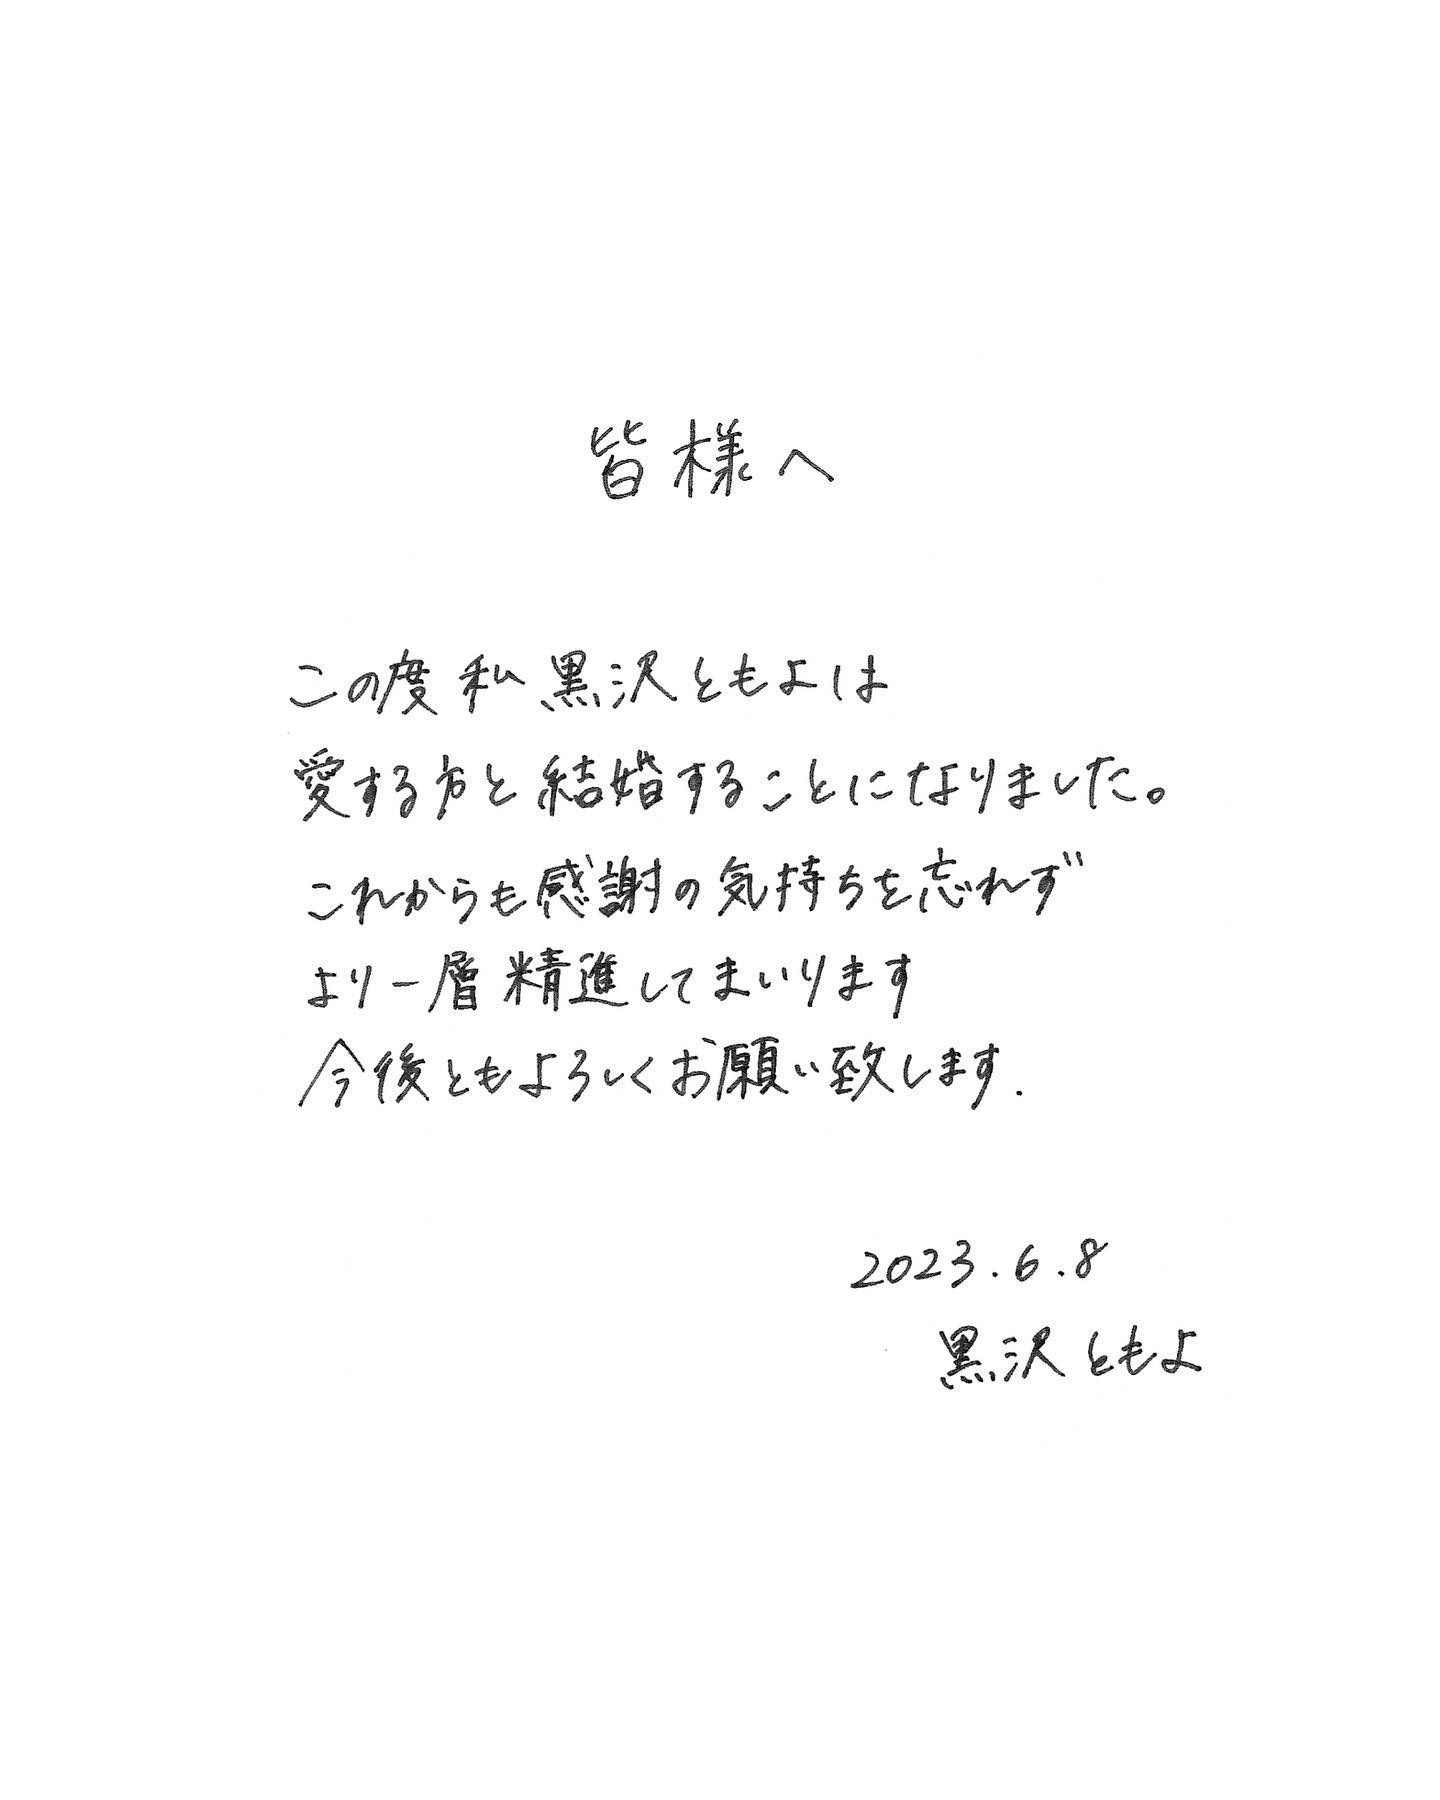 皆様へ
この度 私 黒沢ともよは
愛する方と結婚することになりました。
これからも感謝の気持ちを忘れず
より一層 精進してまいります
今後ともよろしくお願い致します.
2023.6.8
黒沢ともよ